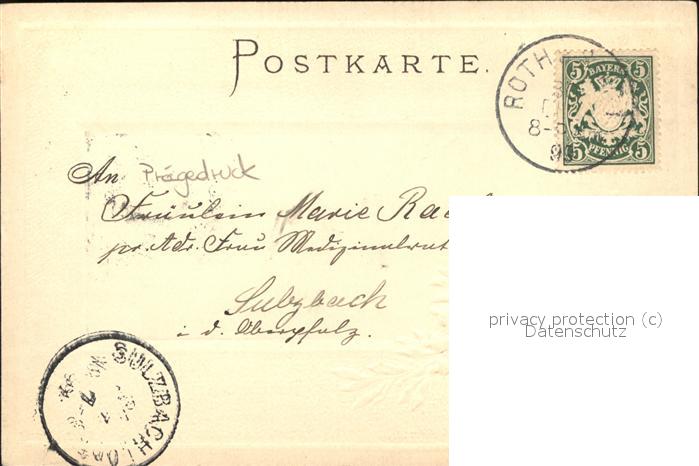 POSTKARTE.
ROTH
8-
5 BAYERN 5
5 PFENNIG 5
An Prägedruck
Fräulein Marie
pr. Adr. Frau Medizinalrat
Sulzbach
i. d. Oberpfalz.
privacy protection (c)
Datenschutz
SULZBACH